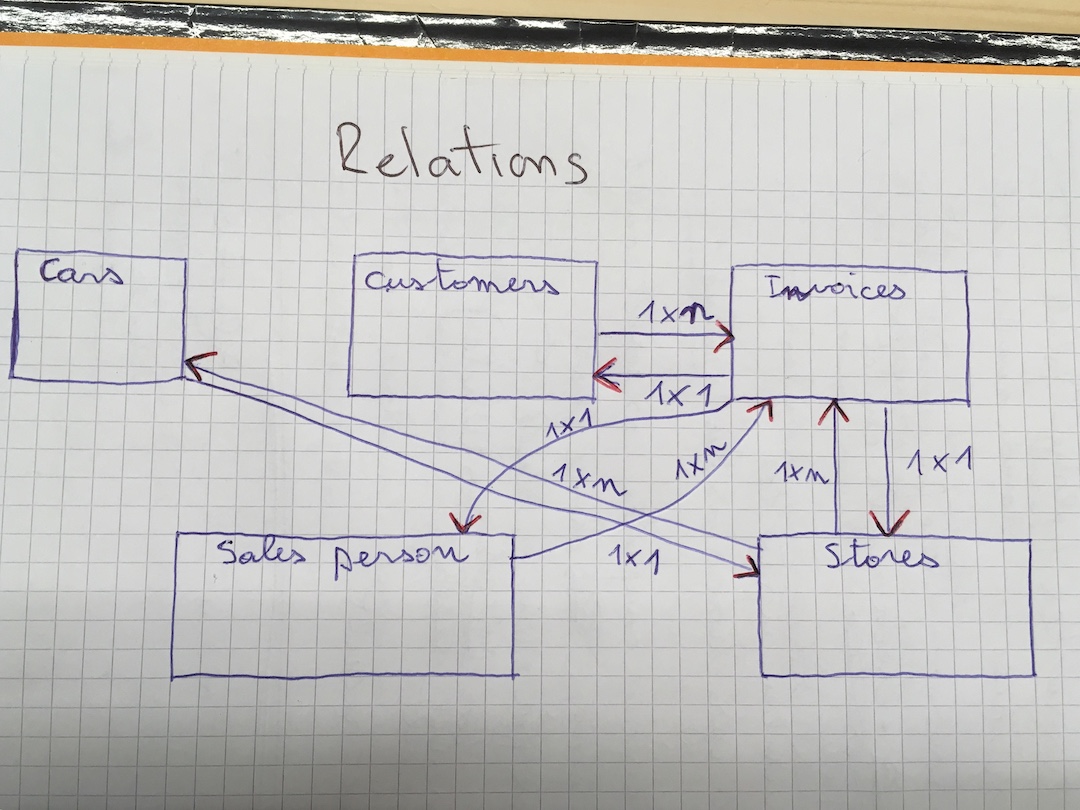 Relations
Cars
Customers
Invoices
1xn
1x1
1x1
1xn
1xn
1xn
1x1
Sales person
1x1
Stores